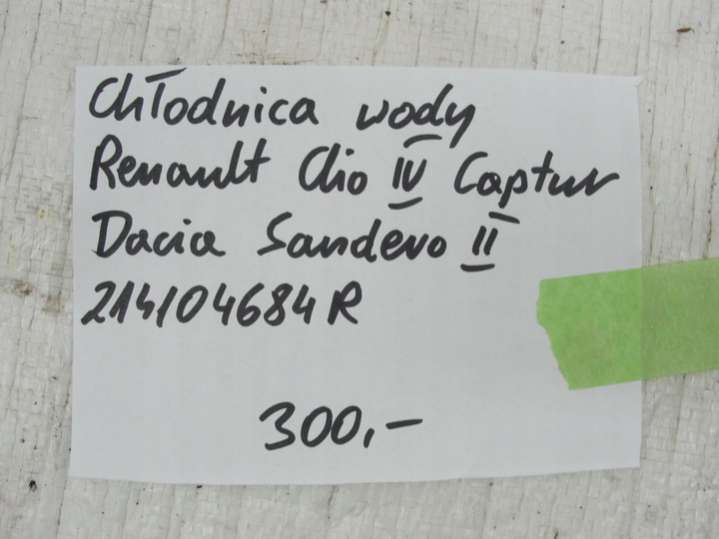 Chłodnica wody
Renault Clio IV Captur
Dacia Sandero II
214104684R
300,-